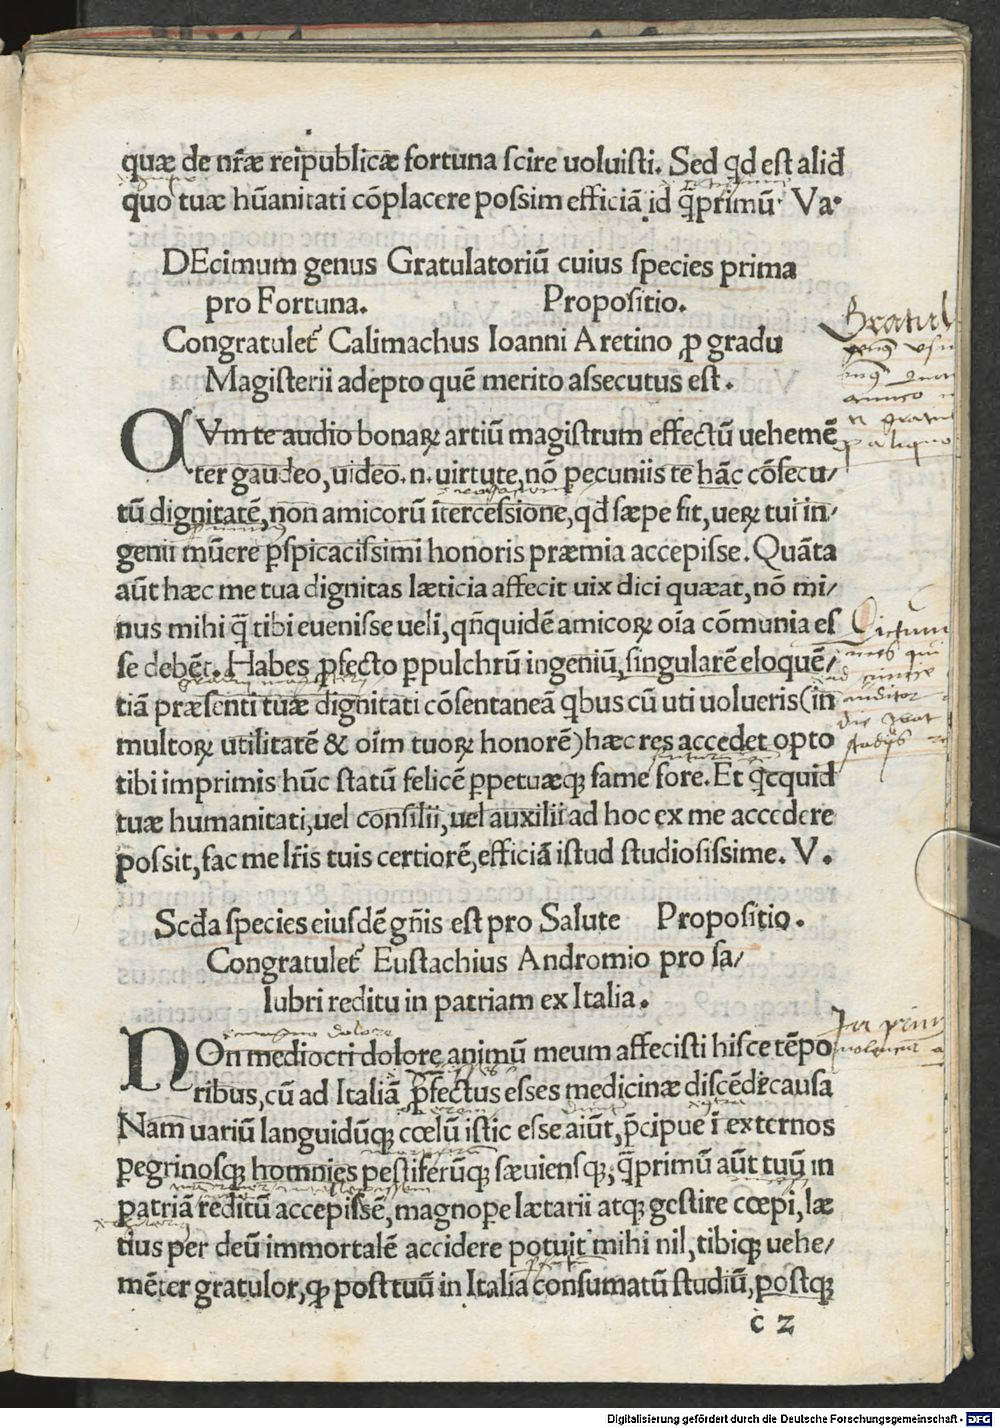 quæ de nr̃æ reipublicæ fortuna scire uoluisti. Sed qd̄ est aliđ
quo tuæ hūanitati cōplacere possim efficiā id q̄primū. Va.
DEcimum genus Gratulatoriū cuius species prima
pro Fortuna. Propositio.
Congratulet᷑ Calimachus Ioanni Aretino ꝓ gradu
Magisterii adepto quē merito assecutus est.
QVm te audio bonaꝝ artiū magistrum effectū uehemē
ter gaudeo, uideo.n.uirtute, nō pecuniis te hāc cōsecu/
tū dignitatē, non amicorū ītercessione, qd̄ sæpe fit, ueꝝ tui in/
genii mūere ꝑspicacissimi honoris præmia accepisse. Quāta
aūt hæc me tua dignitas læticia affecit uix dici quæat, nō mi/
nus mihi q̄ tibi euenisse ueli, qñquidē amicoꝝ oīa cōmunia es
se debēt. Habes ꝓfecto ꝑpulchrū ingeniū, singularē eloquē/
tiā præsenti tuæ dignitati cōsentaneā qbus cū uti uolueris (in
multoꝝ utilitatē & oīm tuoꝝ honorē) hæc res accedet opto
tibi imprimis hūc statū felicē ꝑpetuæqꝫ fame fore. Et qcquid
tuæ humanitati, uel consilii, uel auxilii ad hoc ex me accedere
possit, fac me lr̃is tuis certiorē, efficiā istud studiosissime. V.
Scđa species eiusdē gñis est pro Salute Propositio.
Congratulet᷑ Eustachius Andromio pro sa/
lubri reditu in patriam ex Italia.
magno dolore
NOn mediocri dolore animū meum affecisti hisce tēpo
ribus, cū ad Italiā ꝓfectus esses medicinæ discēdi causa
Nam uariū languidūqꝫ cœlū istic esse aiūt, p̄cipue ī externos
ꝑegrinosqꝫ homnies pestiferūqꝫ sæuiensqꝫ, q̄primū aūt tuū in
patriā reditū accepisse, magnoꝑe lætarii atqꝫ gestire cœpi, læ
tius per deū immortalē accidere potuit mihi nil, tibiqꝫ uehe/
mēter gratulor, ꝙ post tuū in Italia consumatū studiū, postqꝫ
c 2
Digitalisierung gefördert durch die Deutsche Forschungsgemeinschaft - DFG